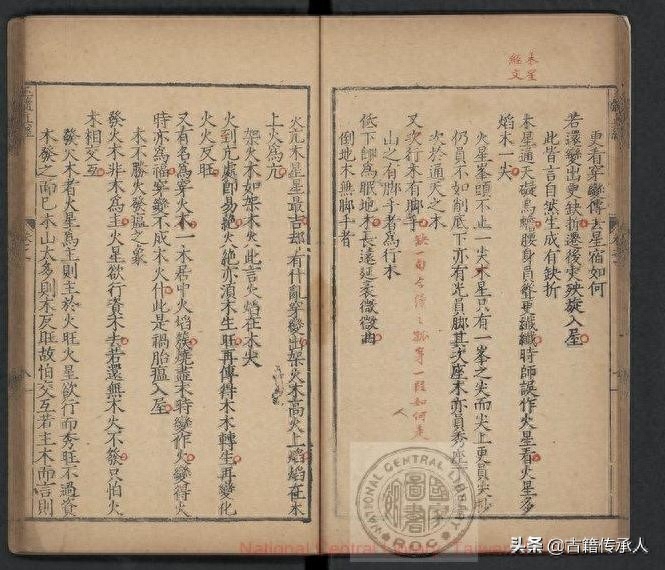 木星
經文
更看穿變傳去星宿如何
若還變出更缺折遷後灾殃旋入屋
此皆言自然生成有缺折
木星通天礙鳥膽腰身員聳更纖纖時師誤作火星看火星多
焰木一尖
火星峯頭不止一尖木星只有一峯之尖而尖上更員尖抄
仍員不如削底下亦有光員脚其次座木亦員秀座
次於通天之木
又次行木有脚等
缺一句今傳之孤等一段如何是
山之有脚手者為行木
低下師為眠地木長遠延袤微微曲
倒地木無脚手者
火亢木星星最吉却有什亂穿變出架火木高火上焰焰在木
上火為亢
架火木如架木火此言火焰在木尖
火到亢處即易絶火絶亦須木生旺再傳得木木轉生再變化
火火反旺
又有名為穿火木一木居中火焰簇燒盡木時變作火變得火
時亦為福穿變不成木火什此是禍胎瘟入屋
木不勝火發瘟之象
發火木非木為主火星欲行資木去若還無木火不發只怕火
木相交互
發火木者火星為主則主於火旺火星欲行而秀旺不過資
木發之而已木山太多則木反旺故怕交互若主木而言則
NATIONAL CENTRAL LIBRARY
R O C
National Central Library, Taiwan
头条 @古籍传承人